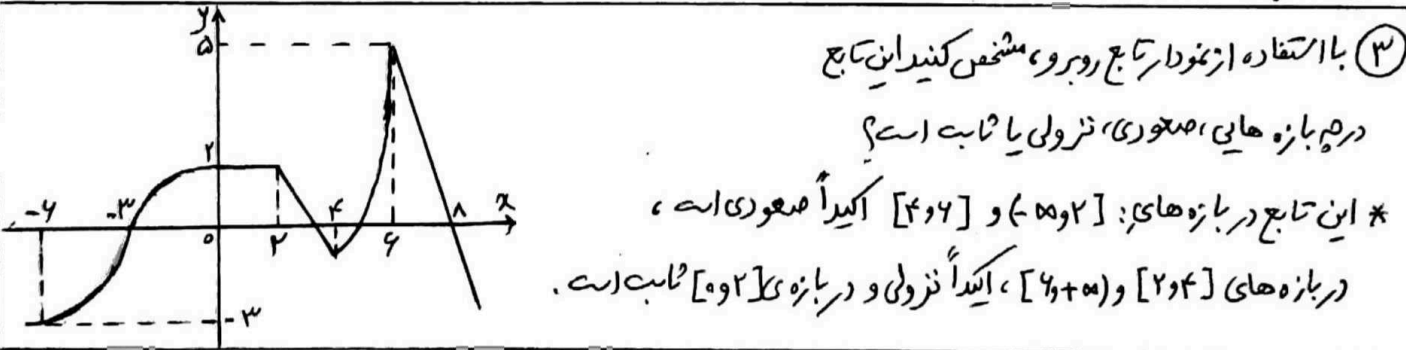 ۳ با استفاده از نمودار تابع روبرو، مشخص کنید این تابع
در چه بازه هایی، صعودی، نزولی یا ثابت است؟
* این تابع در بازه های: [۲و∞-) و [۴و۶] اکیداً صعودی است،
در بازه های [۲و۴] و (∞+و۶]، اکیداً نزولی و در بازه ی [۰و۲] ثابت است.
y
۵
۲
-۶ -۳ ۰ ۲ ۴ ۶ ۸ x
-۳